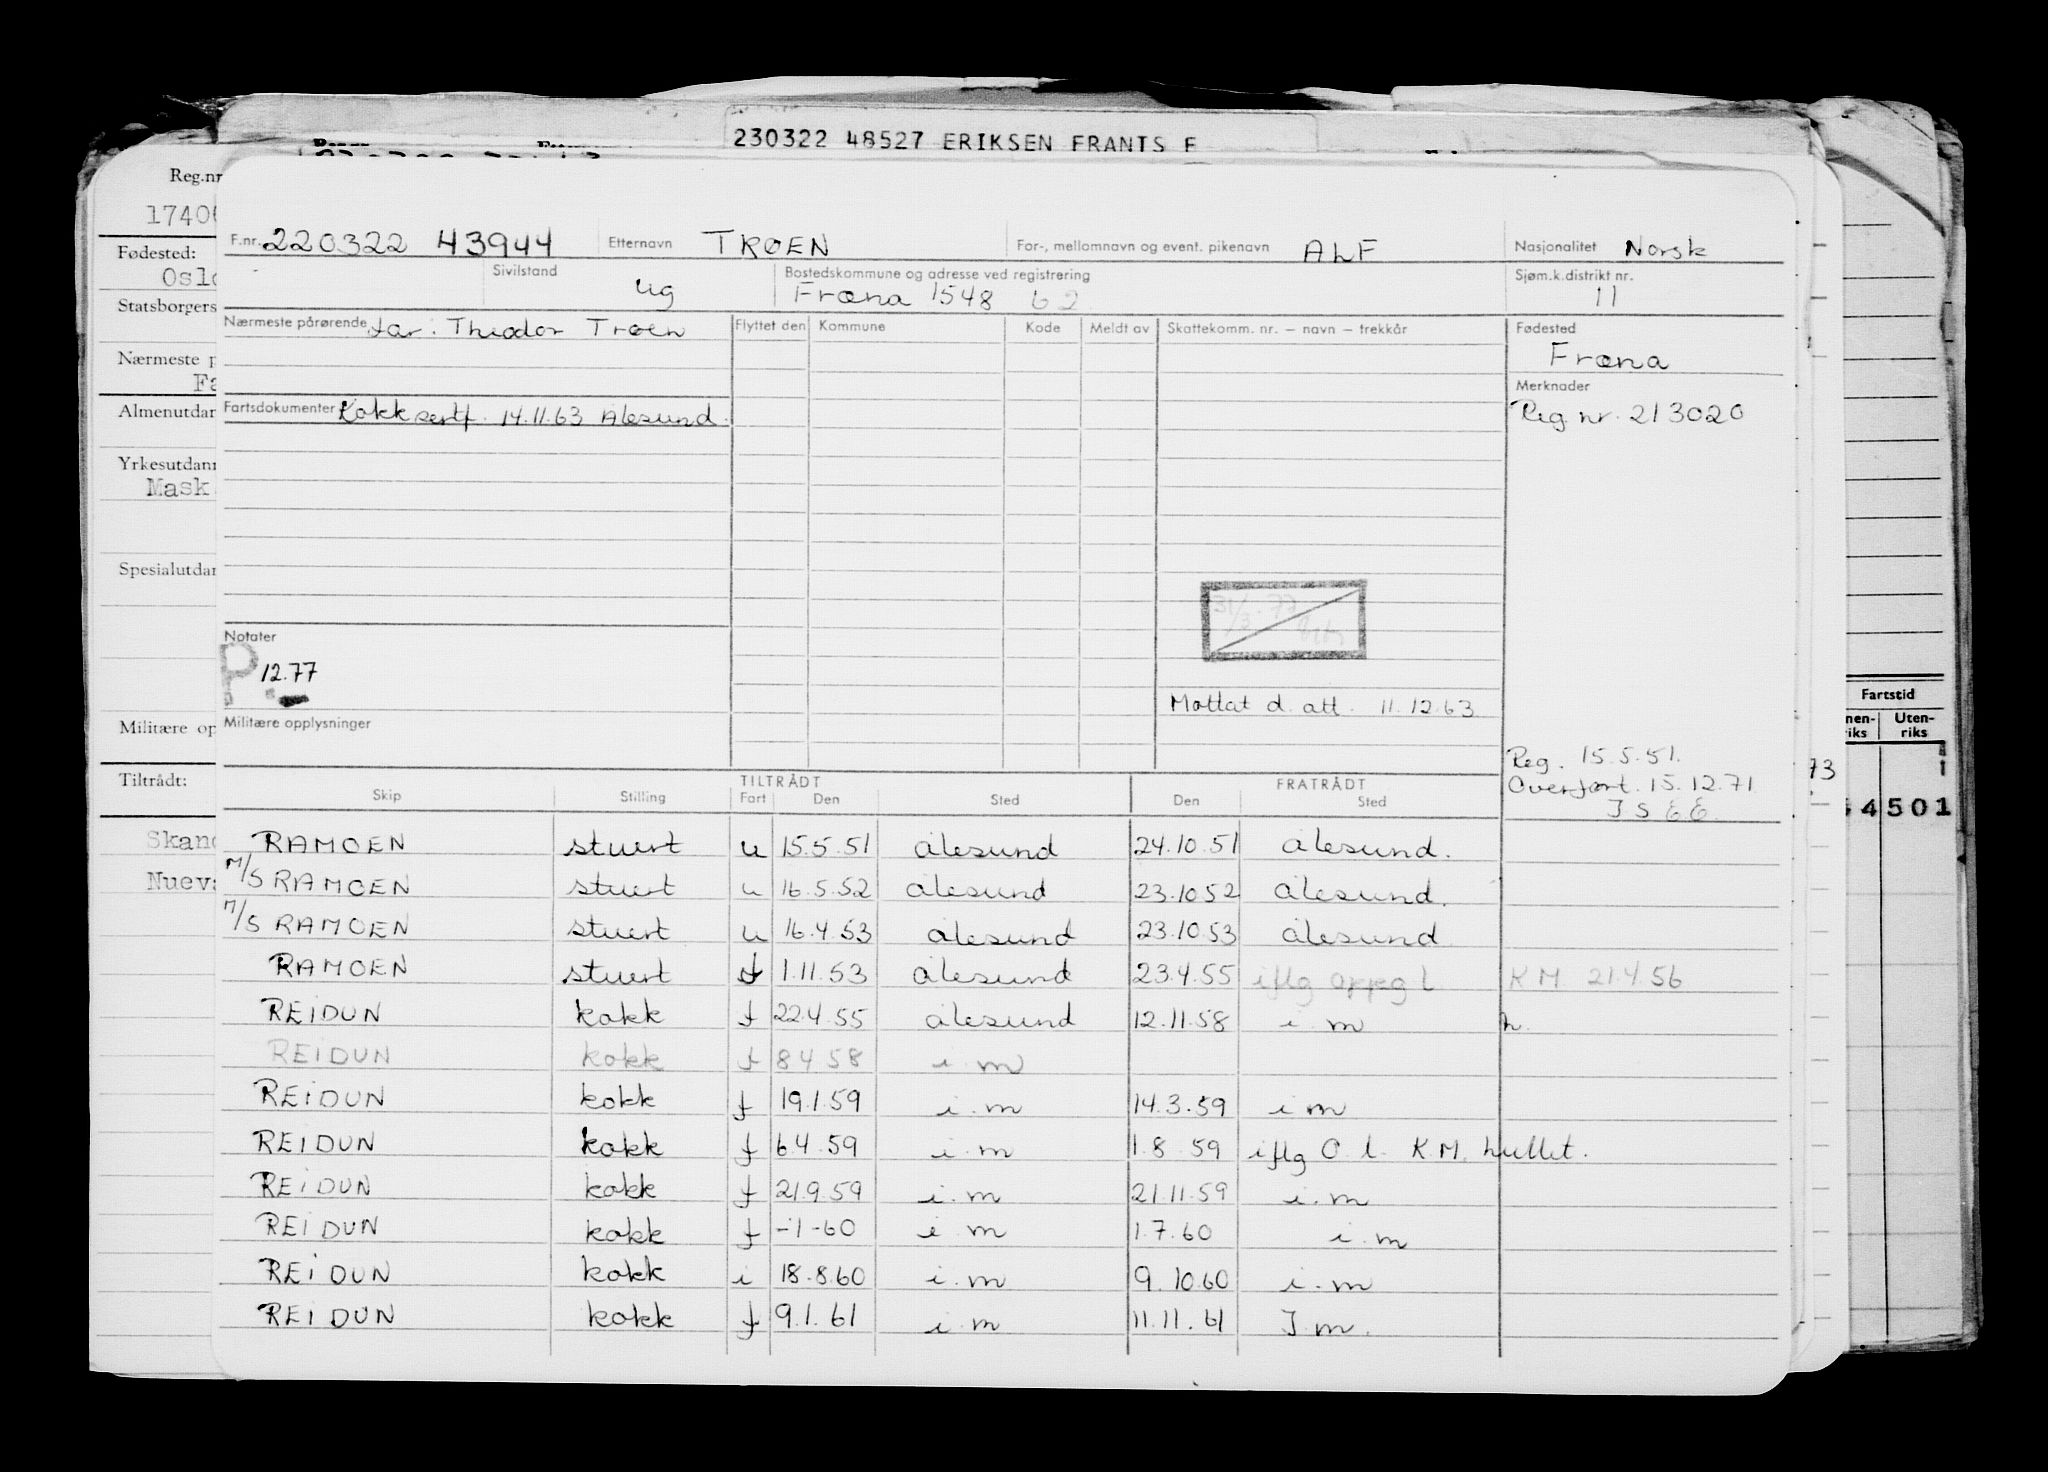 230322 48527 ERIKSEN FRANTS E
Reg.nr
Fødested:
Oslo
Statsborgers
Nærmeste p
Fa
Almenutdan
Yrkesutdann
Mask
Spesialutdan
Militære op
Tiltrådt:
Skand
Nueva
F.nr. 220322 43944 Etternavn TRØEN For-, mellomnavn og event. pikenavn ALF Nasjonalitet Norsk
Sivilstand ug Bostedskommune og adresse ved registrering Fræna 1548 62 Sjøm.k.distrikt nr. 11
Nærmeste pårørende far: Theodor Trøen Flyttet den Kommune Kode Meldt av Skattekomm. nr. – navn – trekkår Fødested
Fræna
Merknader
Fartsdokumenter Kokksertf. 14.11.63 Ålesund. Reg. nr. 213020
31/3.77
Notater
P 12.77
Mottat d. att. 11.12.63
Militære opplysninger
Reg. 15.5.51.
Overført. 15.12.71
TILTRÅDT FRATRÅDT
Skip Stilling Fart Den Sted Den Sted
RAMOEN stuert u 15.5.51 Ålesund 24.10.51 Ålesund.
M/S RAMOEN stuert u 16.5.52 Ålesund 23.10.52 Ålesund.
M/S RAMOEN stuert u 16.4.53 Ålesund 23.10.53 Ålesund
RAMOEN stuert f 1.11.53 Ålesund 23.4.55 iflg oppg l KM 21.4.56
REIDUN kokk f 22.4.55 Ålesund 12.11.58 i.m h.
REIDUN kokk f 8.4.58 i.m
REIDUN kokk f 19.1.59 i.m 14.3.59 i m
REIDUN kokk f 6.4.59 i.m 1.8.59 iflg O.l. KM. hullet.
REIDUN kokk f 21.9.59 i.m 21.11.59 i.m
REIDUN kokk f -1-60 i m 1.7.60 i.m
REIDUN kokk i 18.8.60 i.m 9.10.60 i.m
REIDUN kokk f 9.1.61 i.m 11.11.61 I m.
Fartstid
nen-
riks
Uten-
riks
73
4 501